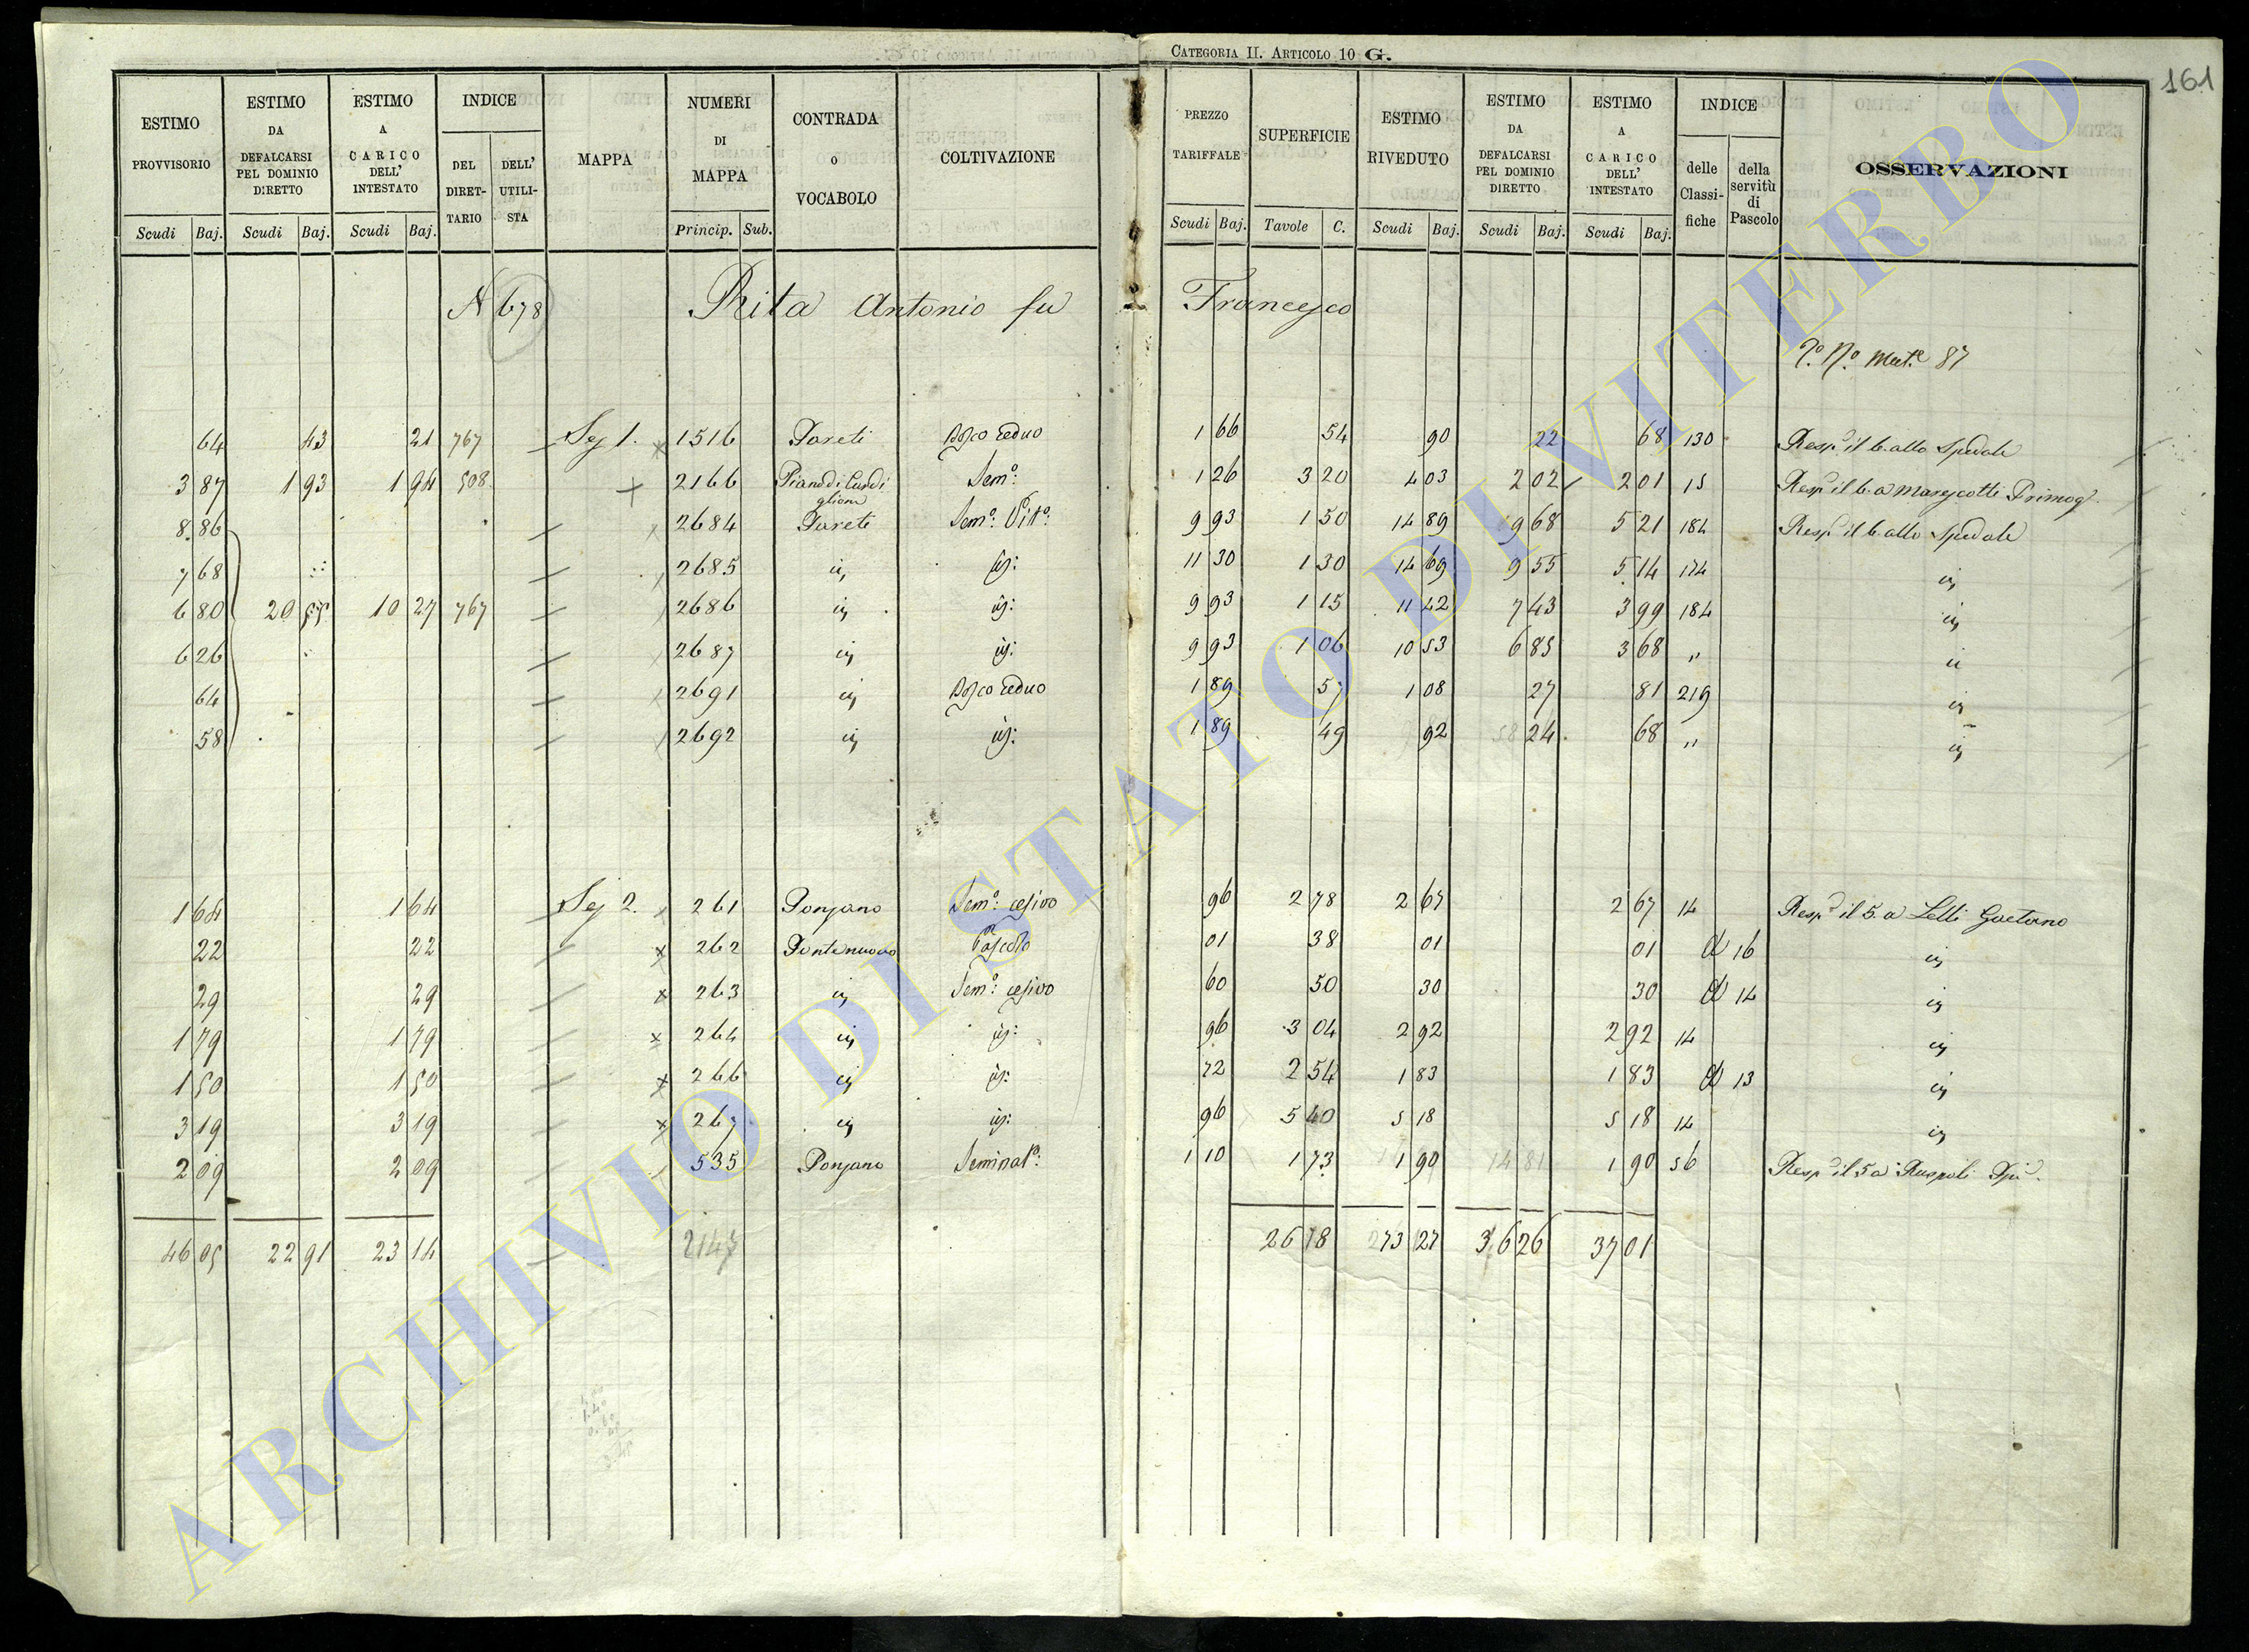 CATEGORIA II. ARTICOLO 10 G.
161
ESTIMO PROVVISORIO Scudi Baj.
ESTIMO DA DEFALCARSI PEL DOMINIO DIRETTO Scudi Baj.
ESTIMO A CARICO DELL' INTESTATO Scudi Baj.
INDICE DEL DIRET- TARIO DELL' UTILI- STA
MAPPA
NUMERI DI MAPPA Princip. Sub.
CONTRADA O VOCABOLO
COLTIVAZIONE
PREZZO TARIFFALE Scudi Baj.
SUPERFICIE Tavole C.
ESTIMO RIVEDUTO Scudi Baj.
ESTIMO DA DEFALCARSI PEL DOMINIO DIRETTO Scudi Baj.
ESTIMO A CARICO DELL' INTESTATO Scudi Baj.
INDICE delle Classi- fiche della servitù di Pascolo
OSSERVAZIONI
N 678 Rita Antonio fu Francesco
87
64 43 21 767 Sez 1. 1516 Pareti Bosco ceduo 1 66 54 90 22 68 130 Resp. il 6. allo Spedale
3 87 1 93 1 94 508 2166 Piano di Sem.o 1 26 3 20 4 03 2 02 2 01 15 Resp. il 6. a Marescotti Primog.
8 86 2684 Pareti Sem.o Vit.o 9 93 1 50 14 89 9 68 5 21 184 Resp. il 6. allo Spedale
7 68 2685 id id: 11 30 1 30 14 69 9 55 5 14 174 id
6 80 20 55 10 27 767 2686 id id: 9 93 1 15 11 42 7 43 3 99 184 id
6 26 2687 id id: 9 93 1 06 10 53 6 85 3 68 " id
64 2691 id Bosco ceduo 1 89 57 1 08 27 81 219 id
58 2692 id id: 1 89 49 92 24 68 " id
1 64 1 64 Sez 2. 261 Ponzano Sem.o cesivo 96 2 78 2 67 2 67 14 Resp. il 5. a Lelli Gaetano
22 22 262 Fontenuovo Pascolo 01 38 01 01 d 16 id
29 29 263 id Sem.o cesivo 60 50 30 30 d 14 id
1 79 1 79 264 id id: 96 3 04 2 92 2 92 14 id
1 50 1 50 266 id id: 72 2 54 1 83 1 83 d 13 id
3 19 3 19 267 id id: 96 5 40 5 18 5 18 14 id
2 09 2 09 535 Ponzano Seminat.o: 1 10 1 73 1 90 1 90 56 Resp. il 5 a Ruspoli
46 05 22 91 23 14 2147 26 78 73 27 36 26 37 01
ARCHIVIO DI STATO DI VITERBO